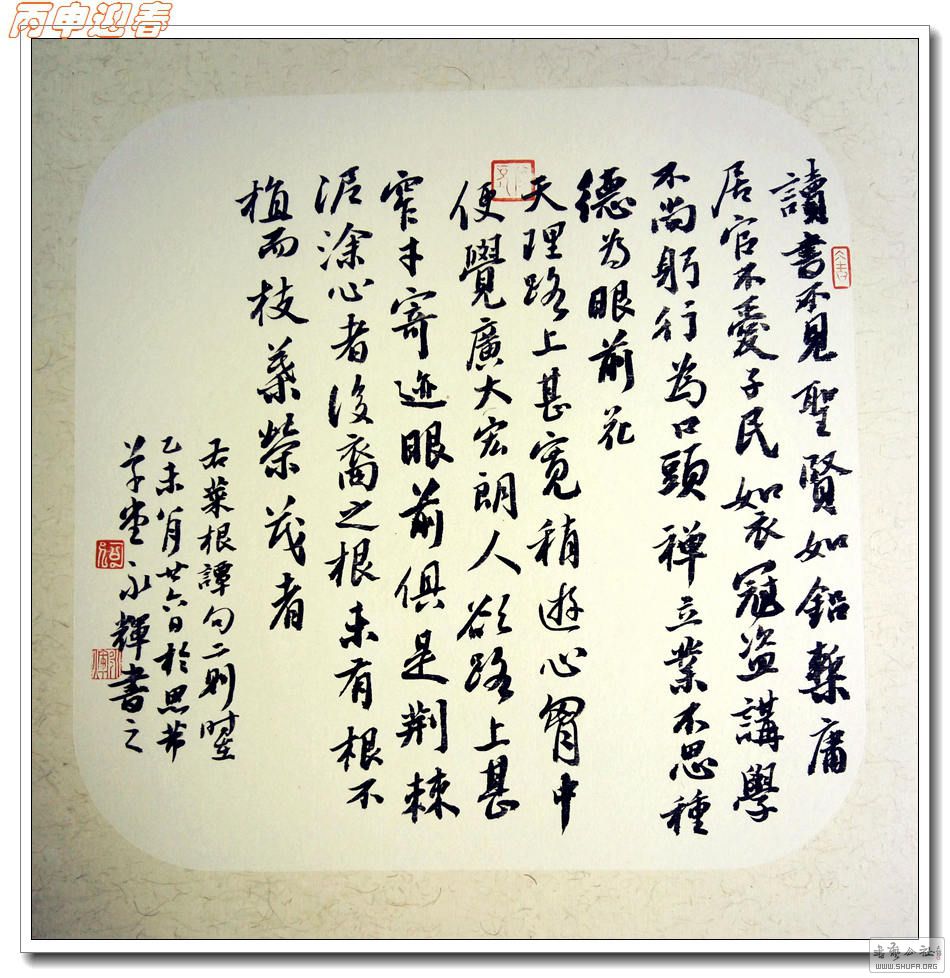 丙申迎春
讀書不見聖賢如鉛槧庸
居官不愛子民如衣冠盗講學
不尚躬行為口頭禪立業不思種
德為眼前花
天理路上甚寬稍遊心胷中
便覺廣大宏朗人欲路上甚
窄才寄迹眼前俱是荆棘
泥涂心者後裔之根未有根不
植而枝葉榮茂者
右菜根譚句二則時
乙未八月廿六日於思芾
草堂永輝書之
書法公社
WWW.SHUFA.ORG